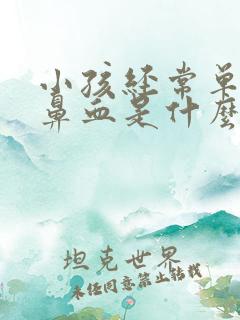 小孩经常单
鼻血是什么
坦克世界
未经同意禁止转载